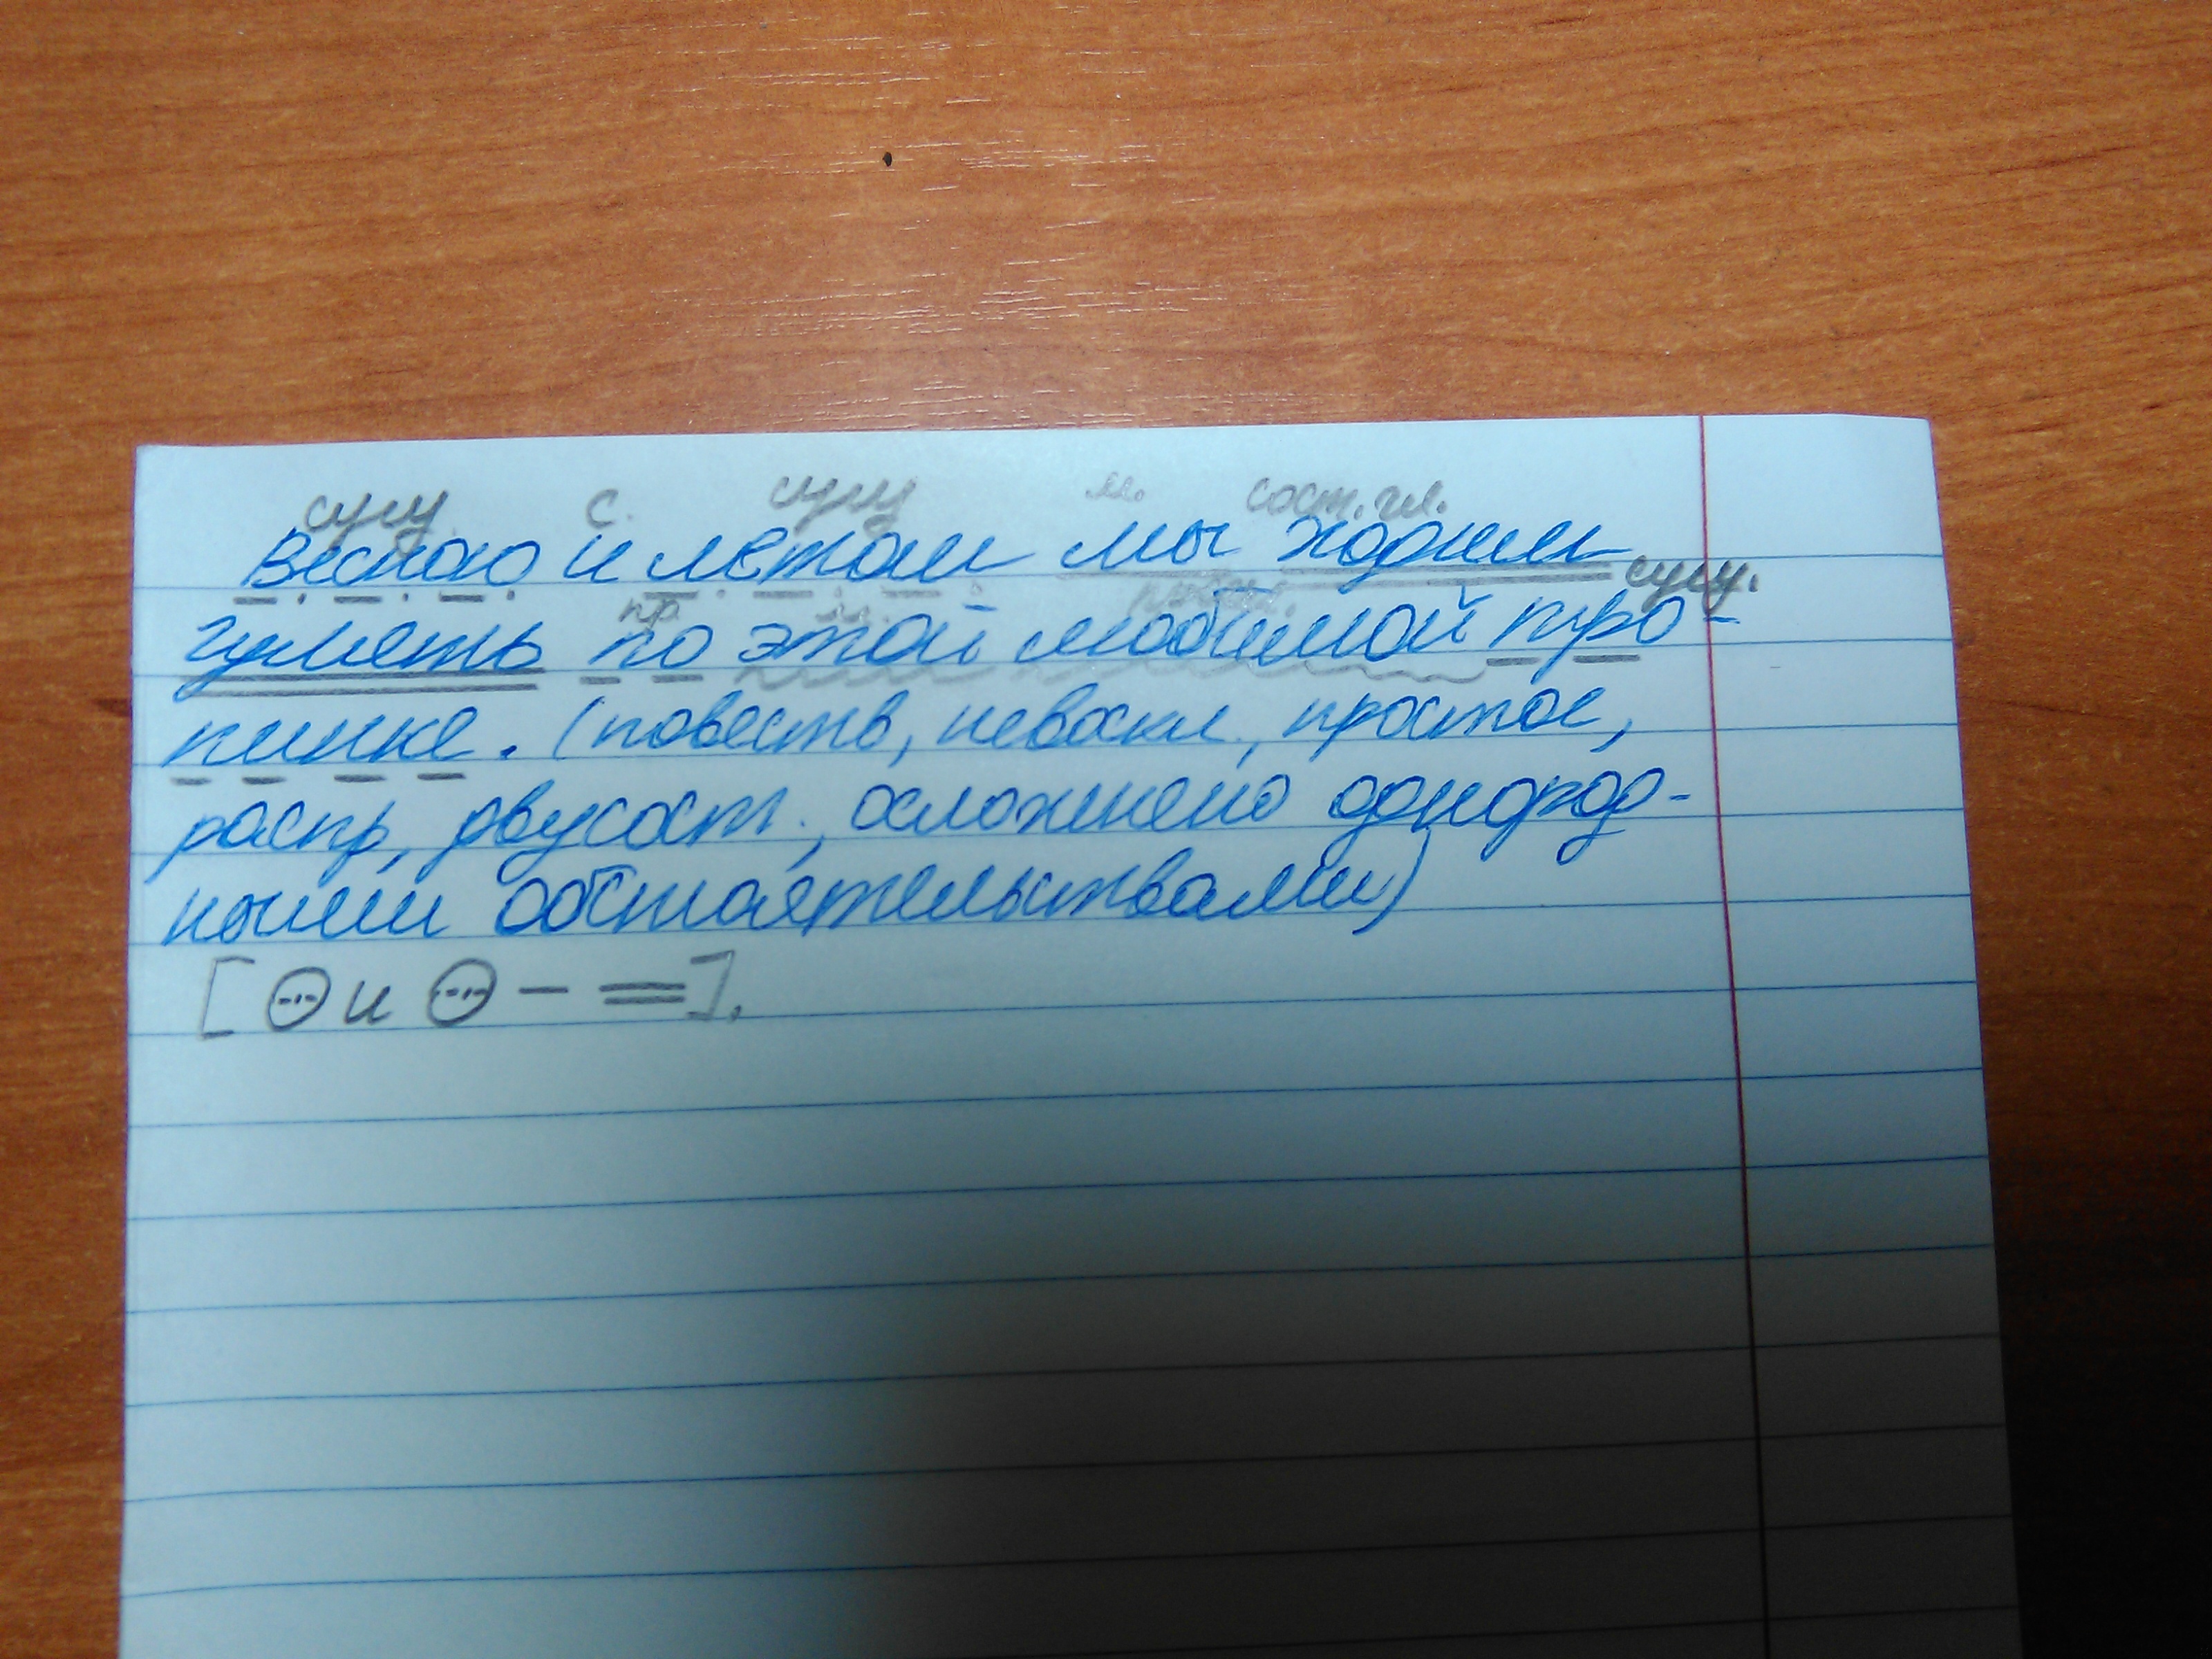 сущ. с. сущ м. сост. гл.
Весною и летом мы ходим
сущ.
пр. м. прил.
гулять по этой любимой тро-
пинке. (повеств, невоскл., простое,
распр, двусост., осложнено однород-
ными обстоятельствами)
[ и — =].